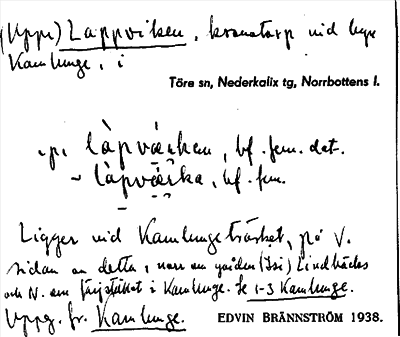 (Uppe) Lappviken, kronotorp vid
Kamlunge, i
Töre sn, Nederkalix tg, Norrbottens l.
låpvæ̀ikan, bf. fem. det.
~ låpvæ̀ika, bf. fem.
Ligger vid Kamlungeträsket, på V.
sidan av detta, norr om gården (Isi) Lindbäcks
och N. om färjstället i Kamlunge. Se 1-3 Kamlunge.
Uppg. fr. Kamlunge. EDVIN BRÄNNSTRÖM 1938.